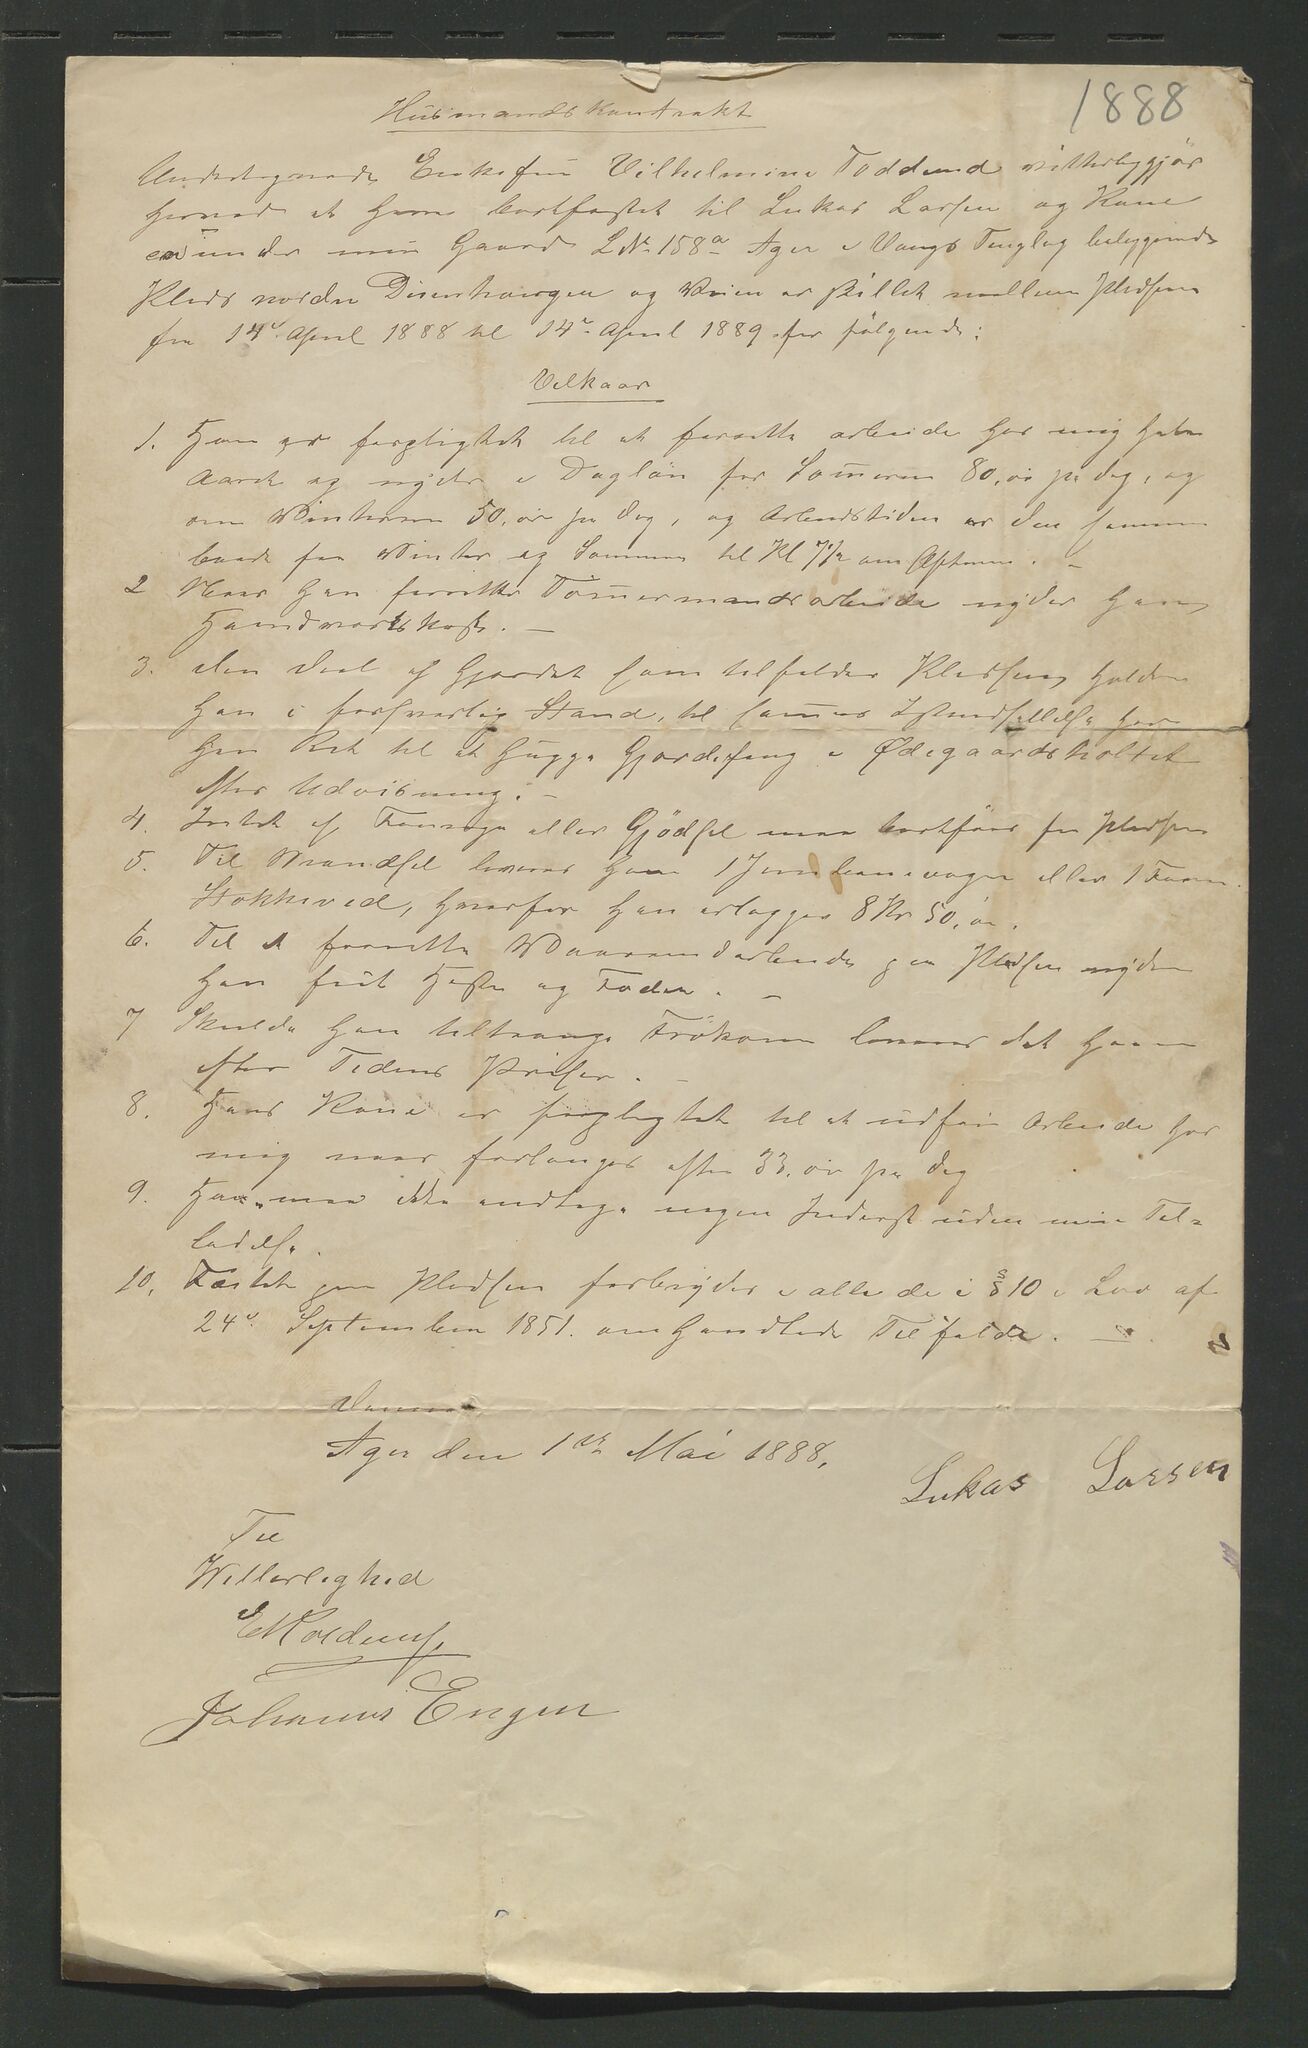 1888
Husmandskontrakt
Undertegnede Enkefru Vilhelmine Toddrud vitterliggjør
herved at have bortfæstet til Lukas Larsen og Kone
en under min Gaard L.Nr. 158a Ager i Vangs Tinglag beliggende
Plads nordre Disenhaugen og Veien er skillet mellem Pladsene
fra 14de April 1888 til 14de April 1889 for følgende:
Vilkaar
1. Han er forpligtet til at forrette arbeide hos mig hele
Aaret og nyder i Dagløn for Sommeren 80 øre pr dag, og
om Vinteren 50 øre pr dag, og Arbeidstiden er den samme
baade for Vinter og Sommer til Kl 7½ om Aftenen. –
2 Naar han forretter Tømmermandsarbeide nyder han
Haandverkskost. –
3. den Deel af Gjærdet som tilfalder Pladsen holder
han i forsvarlig Stand, til sammes Istandsættelse har
han Ret til at hugge Gjærdefang i Ødegaardsholtet
efter Udvisning. –
4. Intet af Foureage eller Gjødsel maa bortføres fra Pladsen
5. Til Brændsel leveres ham 1 Jernbanevogn eller 1 Favn
Stokkeved, hvorfor han erlægger 8 Kr 50 øre.
6. Til at forrette Vaaraandarbeide paa Pladsen nyder
han frit Heste og Foder. –
7 Skulde han tiltrænge Frøkorn leveres det ham
efter Tidens Priser. –
8. Hans Kone er forpligtet til at udføre Arbeide hos
mig naar forlanges efter 33 øre pr dag
9. Han maa ikke modtage nogen Inderst uden min Til=
ladelse.
10. Fæstet paa Pladsen forbryder i alle de i § 10 i Lov af
24de September 1851 omhandlede Tilfælde. –
Ager den 1ste Mai 1888.
Lukas Larsen
Til
Vitterlighed
Johannes Engen